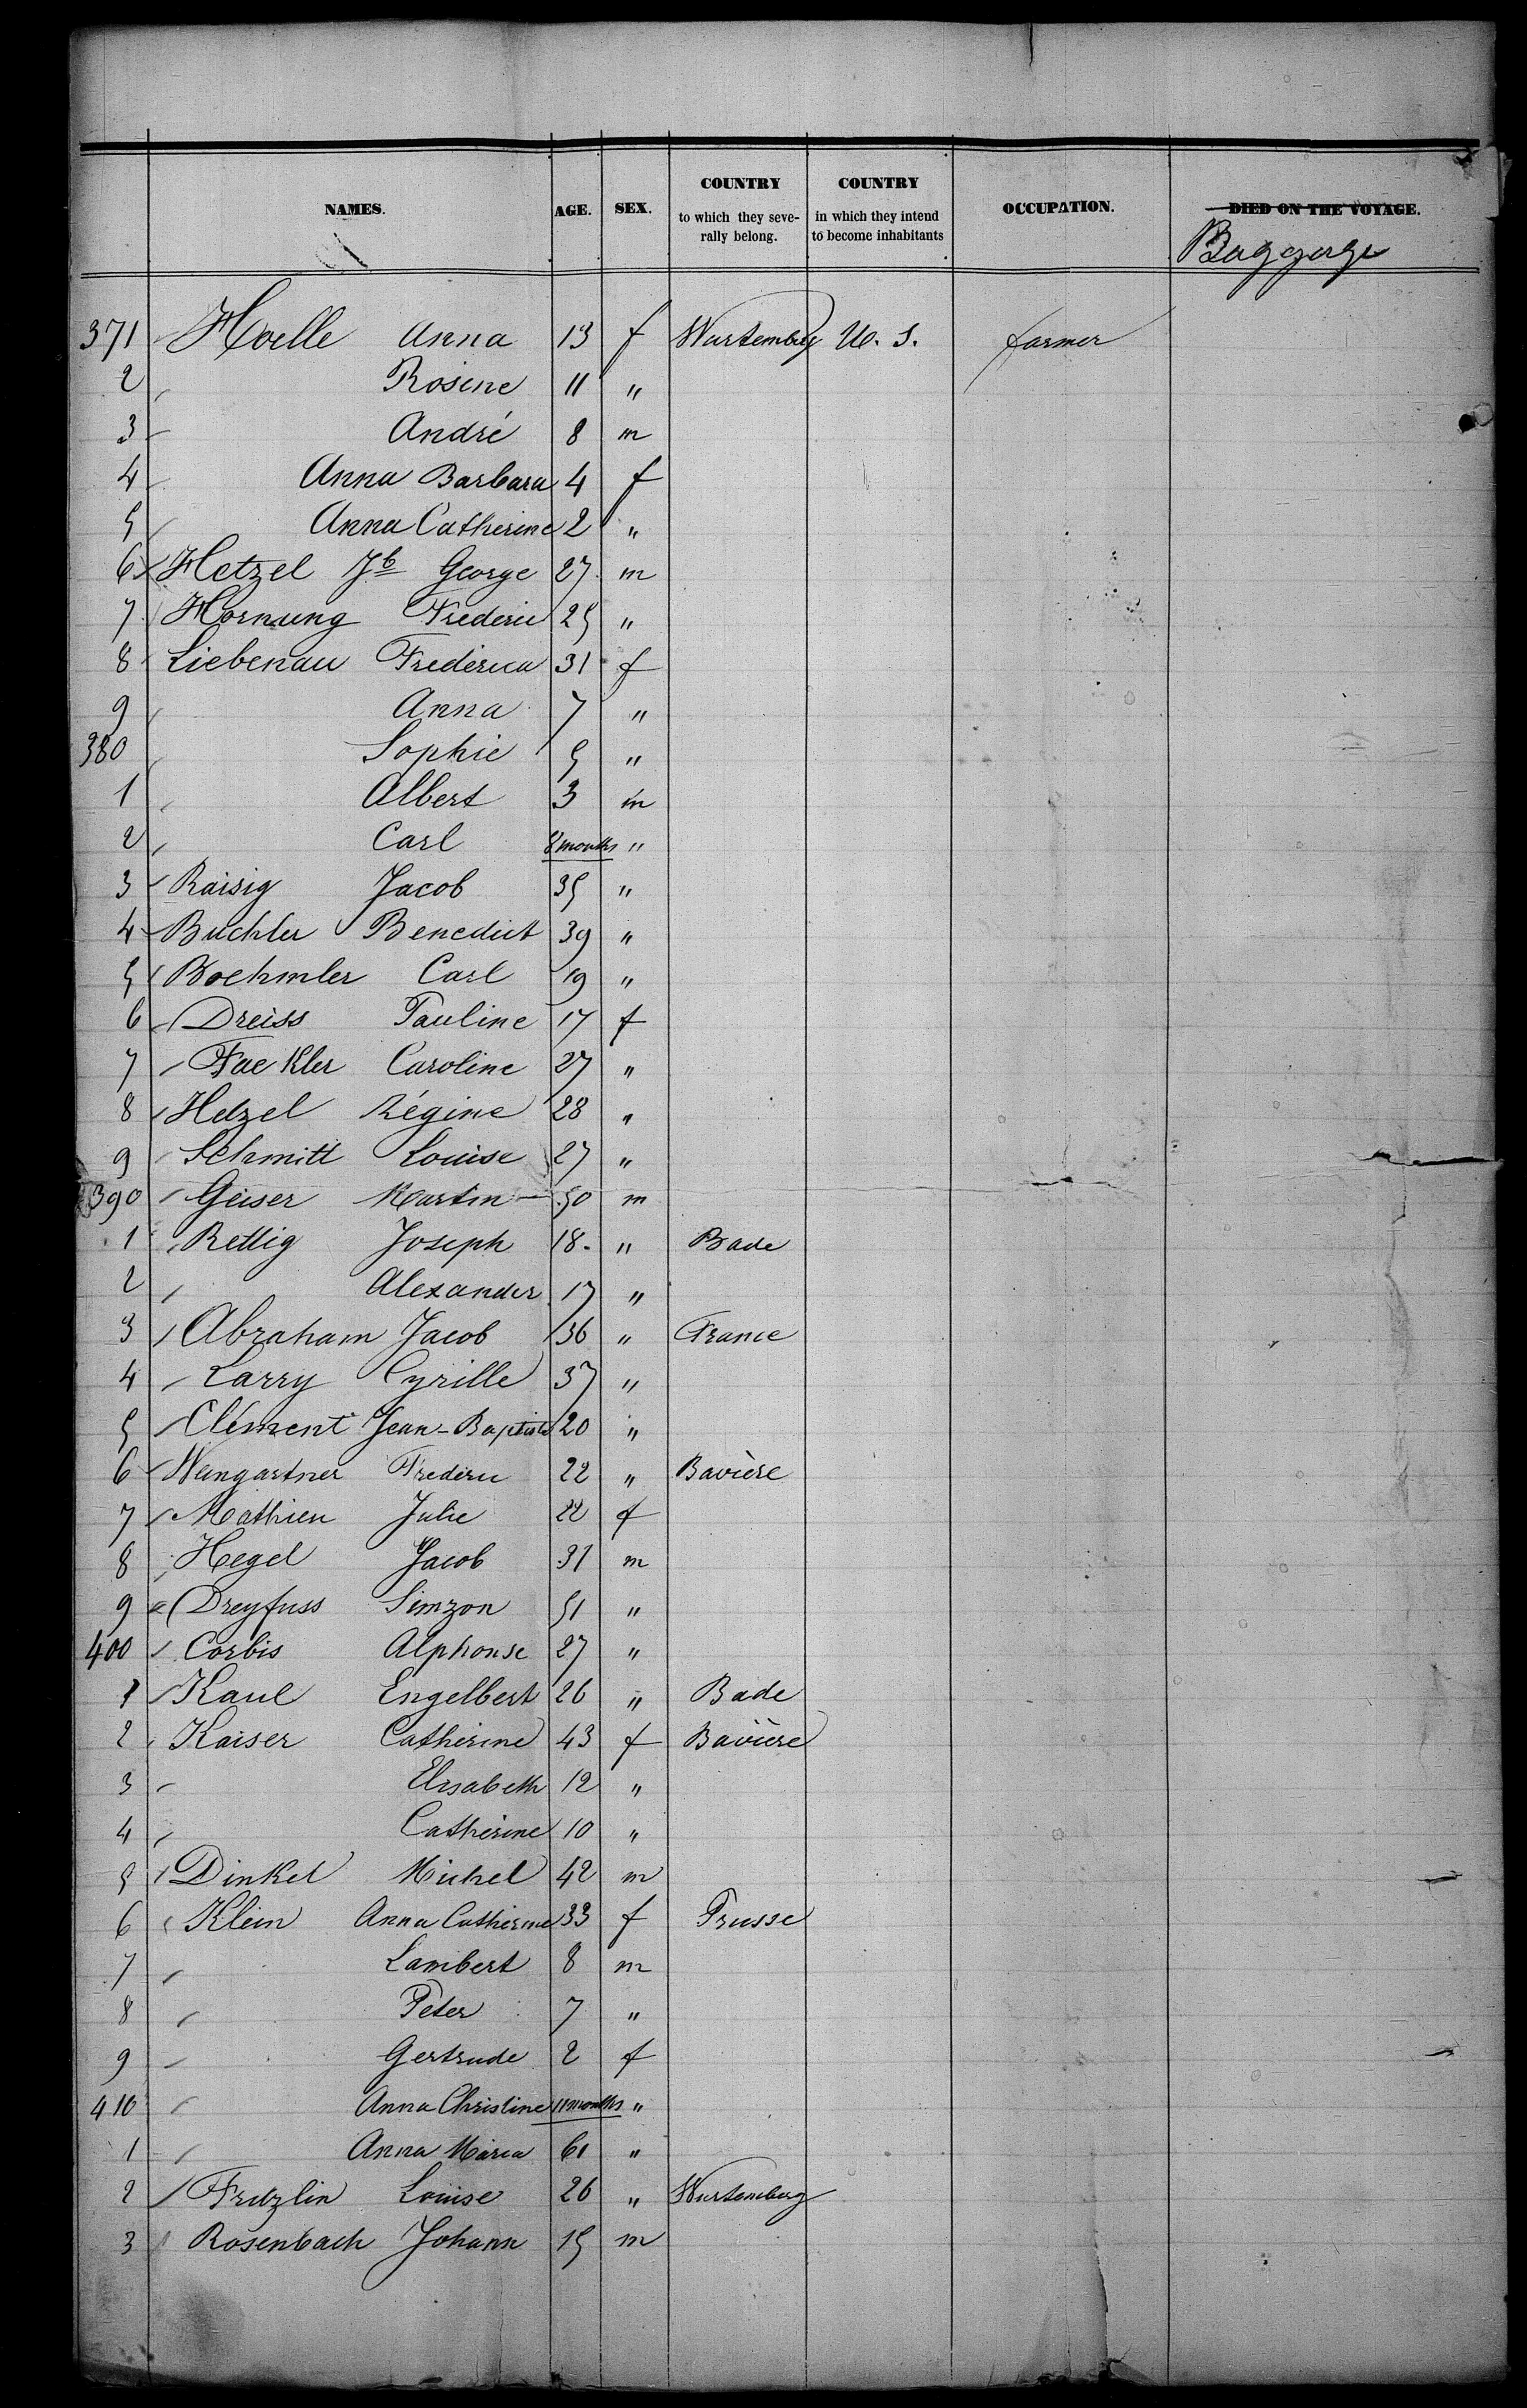 NAMES. AGE. SEX. COUNTRY to which they severally belong. COUNTRY in which they intend to become inhabitants OCCUPATION. DIED ON THE VOYAGE.
Baggage
371 Hoelle Anna 13 f Wurtemberg U. S. farmer
2 Rosine 11 "
3 André 8 m
4 Anna Barbara 4 f
5 Anna Catherine 2 "
6 Hetzel Jb George 27 m
7 Hornung Frederic 25 "
8 Liebenau Frederica 31 f
9 Anna 7 "
380 Sophie 5 "
1 Albert 3 m
2 Carl 8 months "
3 Raisig Jacob 35 "
4 Buchler Benedict 39 "
5 Boehmler Carl 19 "
6 Dreiss Pauline 17 f
7 Fackler Caroline 27 "
8 Hetzel Régine 28 "
9 Schmitt Louise 27 "
390 Geiser Martin 50 m
1 Rettig Joseph 18 " Bade
2 Alexander 17 "
3 Abraham Jacob 36 " France
4 Larry Cyrille 37 "
5 Clément Jean-Baptiste 20 "
6 Weingartner Frederic 22 " Bavière
7 Mathieu Julie 22 f
8 Hegel Jacob 31 m
9 Dreyfuss Simzon 51 "
400 Corbis Alphonse 27 "
1 Kaul Engelbert 26 " Bade
2 Kaiser Catherine 43 f Bavière
3 Elisabeth 12 "
4 Catherine 10 "
5 Dinkel Michel 42 m
6 Klein Anna Catherine 33 f Prusse
7 Lambert 8 m
8 Peter 7 "
9 Gertrude 2 f
410 Anna Christine 11 months "
1 Anna Maria 61 "
2 Fritzlin Louise 26 " Wurtemberg
3 Rosenbach Johann 15 m